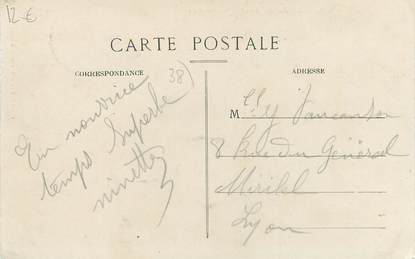 12 €
CARTE POSTALE
CORRESPONDANCE
ADRESSE
38)
En nourrice
temps superbe
ninette
M elles Y Vaucanson
8 Rue du Général
Miribel
Lyon